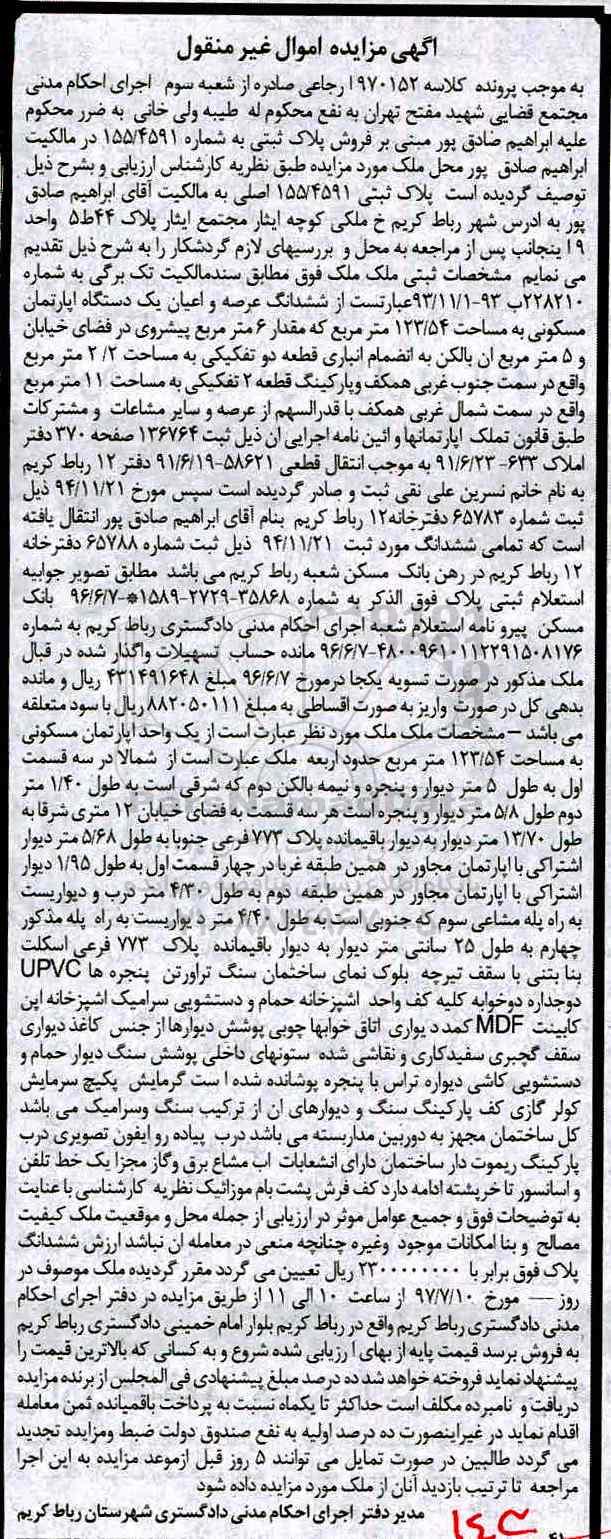 آگهی مزایده اموال غیر منقول
به موجب پرونده کلاسه ۹۷۰۱۵۲ ا رجاعی صادره از شعبه سوم اجرای احکام مدنی
مجتمع قضایی شهید مفتح تهران به نفع محکوم له طیبه ولی خانی به ضرر محکوم
علیه ابراهیم صادق پور مبنی بر فروش پلاک ثبتی به شماره ۱۵۵/۴۵۹۱ در مالکیت
ابراهیم صادق پور محل ملک مورد مزایده طبق نظریه کارشناس ارزیابی و بشرح ذیل
توصیف گردیده است پلاک ثبتی ۱۵۵/۴۵۹۱ اصلی به مالکیت آقای ابراهیم صادق
پور به ادرس شهر رباط کریم خ ملکی کوچه ایثار مجتمع ایثار پلاک ۴۴ط۵ واحد
۹ ا ینجانب پس از مراجعه به محل و بررسیهای لازم گردشکار را به شرح ذیل تقدیم
می نمایم مشخصات ثبتی ملک ملک فوق مطابق سندمالکیت تک برگی به شماره
۲۲۸۲۱۰ب ۹۳-۹۳/۱۱/۱عبارتست از ششدانگ عرصه و اعیان یک دستگاه اپارتمان
مسکونی به مساحت ۱۲۳/۵۴ متر مربع که مقدار ۶ متر مربع پیشروی در فضای خیابان
و ۵ متر مربع ان بالکن به انضمام انباری قطعه دو تفکیکی به مساحت ۲/۲ متر مربع
واقع در سمت جنوب غربی همکف وپارکینگ قطعه ۲ تفکیکی به مساحت ۱۱ متر مربع
واقع در سمت شمال غربی همکف با قدرالسهم از عرصه و سایر مشاعات و مشترکات
طبق قانون تملک اپارتمانها و ائین نامه اجرایی ان ذیل ثبت ۱۳۶۷۶۴ صفحه ۳۷۰ دفتر
املاک ۶۳۳- ۹۱/۶/۲۳ به موجب انتقال قطعی ۵۸۶۲۱-۹۱/۶/۱۹ دفتر ۱۲ رباط کریم
به نام خانم نسرین علی نقی ثبت و صادر گردیده است سپس مورخ ۹۴/۱۱/۲۱ ذیل
ثبت شماره ۶۵۷۸۳ دفترخانه۱۲ رباط کریم بنام آقای ابراهیم صادق پور انتقال یافته
است که تمامی ششدانگ مورد ثبت ۹۴/۱۱/۲۱ ذیل ثبت شماره ۶۵۷۸۸ دفترخانه
۱۲ رباط کریم در رهن بانک مسکن شعبه رباط کریم می باشد مطابق تصویر جوابیه
استعلام ثبتی پلاک فوق الذکر به شماره ۳۵۸۶۸-۲۷۲۹-۱۵۸۹*-۹۶/۶/۷ بانک
مسکن پیرو نامه استعلام شعبه اجرای احکام مدنی دادگستری رباط کریم به شماره
۴۸۰۰۹۶۱۰۱۱۲۲۹۱۵۰۸۱۷۶-۹۶/۶/۷ مانده حساب تسهیلات واگذار شده در قبال
ملک مذکور در صورت تسویه یکجا درمورخ ۹۶/۶/۷ مبلغ ۴۳۱۴۹۱۶۴۸ ریال و مانده
بدهی کل در صورت واریز به صورت اقساطی به مبلغ ۸۸۲۰۵۰۱۱۱ ریال با سود متعلقه
می باشد – مشخصات ملک ملک مورد نظر عبارت است از یک واحد اپارتمان مسکونی
به مساحت ۱۲۳/۵۴ متر مربع حدود اربعه ملک عبارت است از شمالا در سه قسمت
اول به طول ۵ متر دیوار و پنجره و نیمه بالکن دوم که شرقی است به طول ۱/۴۰ متر
دوم طول ۵/۸ متر دیوار و پنجره است هر سه قسمت به فضای خیابان ۱۲ متری شرقا به
طول ۱۳/۷۰ متر دیوار به دیوار باقیمانده پلاک ۷۷۳ فرعی جنوبا به طول ۵/۶۸ متر دیوار
اشتراکی با اپارتمان مجاور در همین طبقه غربا در چهار قسمت اول به طول ۱/۹۵ دیوار
اشتراکی با اپارتمان مجاور در همین طبقه دوم به طول ۴/۳۰ متر درب و دیواریست
به راه پله مشاعی سوم که جنوبی است به طول ۴/۴۰ متر د یواریست به راه پله مذکور
چهارم به طول ۲۵ سانتی متر دیوار به دیوار باقیمانده پلاک ۷۷۳ فرعی اسکلت
بنا بتنی با سقف تیرچه بلوک نمای ساختمان سنگ تراورتن پنجره ها UPVC
دوجداره دوخوابه کلیه کف واحد اشپزخانه حمام و دستشویی سرامیک اشپزخانه اپن
کابینت MDF کمد د یواری اتاق خوابها چوبی پوشش دیوارها از جنس کاغذ دیواری
سقف گچبری سفیدکاری و نقاشی شده ستونهای داخلی پوشش سنگ دیوار حمام و
دستشویی کاشی دیواره تراس با پنجره پوشانده شده ا ست گرمایش پکیج سرمایش
کولر گازی کف پارکینگ سنگ و دیوارهای ان از ترکیب سنگ وسرامیک می باشد
کل ساختمان مجهز به دوربین مداربسته می باشد درب پیاده رو ایفون تصویری درب
پارکینگ ریموت دار ساختمان دارای انشعابات اب مشاع برق وگاز مجزا یک خط تلفن
و اسانسور تا خرپشته ادامه دارد کف فرش پشت بام موزائیک نظریه کارشناسی با عنایت
به توضیحات فوق و جمیع عوامل موثر در ارزیابی از جمله محل و موقعیت ملک کیفیت
مصالح و بنا امکانات موجود وغیره چنانچه منعی در معامله ان نباشد ارزش ششدانگ
پلاک فوق برابر با ۲۳۰۰۰۰۰۰۰۰ ریال تعیین می گردد مقرر گردیده ملک موصوف در
روز — مورخ ۹۷/۷/۱۰ از ساعت ۱۰ الی ۱۱ از طریق مزایده در دفتر اجرای احکام
مدنی دادگستری رباط کریم واقع در رباط کریم بلوار امام خمینی دادگستری رباط کریم
به فروش برسد قیمت پایه از بهای ا رزیابی شده شروع و به کسانی که بالاترین قیمت را
پیشنهاد نماید فروخته خواهد شد ده درصد مبلغ پیشنهادی فی المجلس از برنده مزایده
دریافت و نامبرده مکلف است حداکثر تا یکماه نسبت به پرداخت باقمیانده ثمن معامله
اقدام نماید در غیراینصورت ده درصد اولیه به نفع صندوق دولت ضبط ومزایده تجدید
می گردد طالبین در صورت تمایل می توانند ۵ روز قبل ازموعد مزایده به این اجرا
مراجعه تا ترتیب بازدید آنان از ملک مورد مزایده داده شود
مدیر دفتر اجرای احکام مدنی دادگستری شهرستان رباط کریم